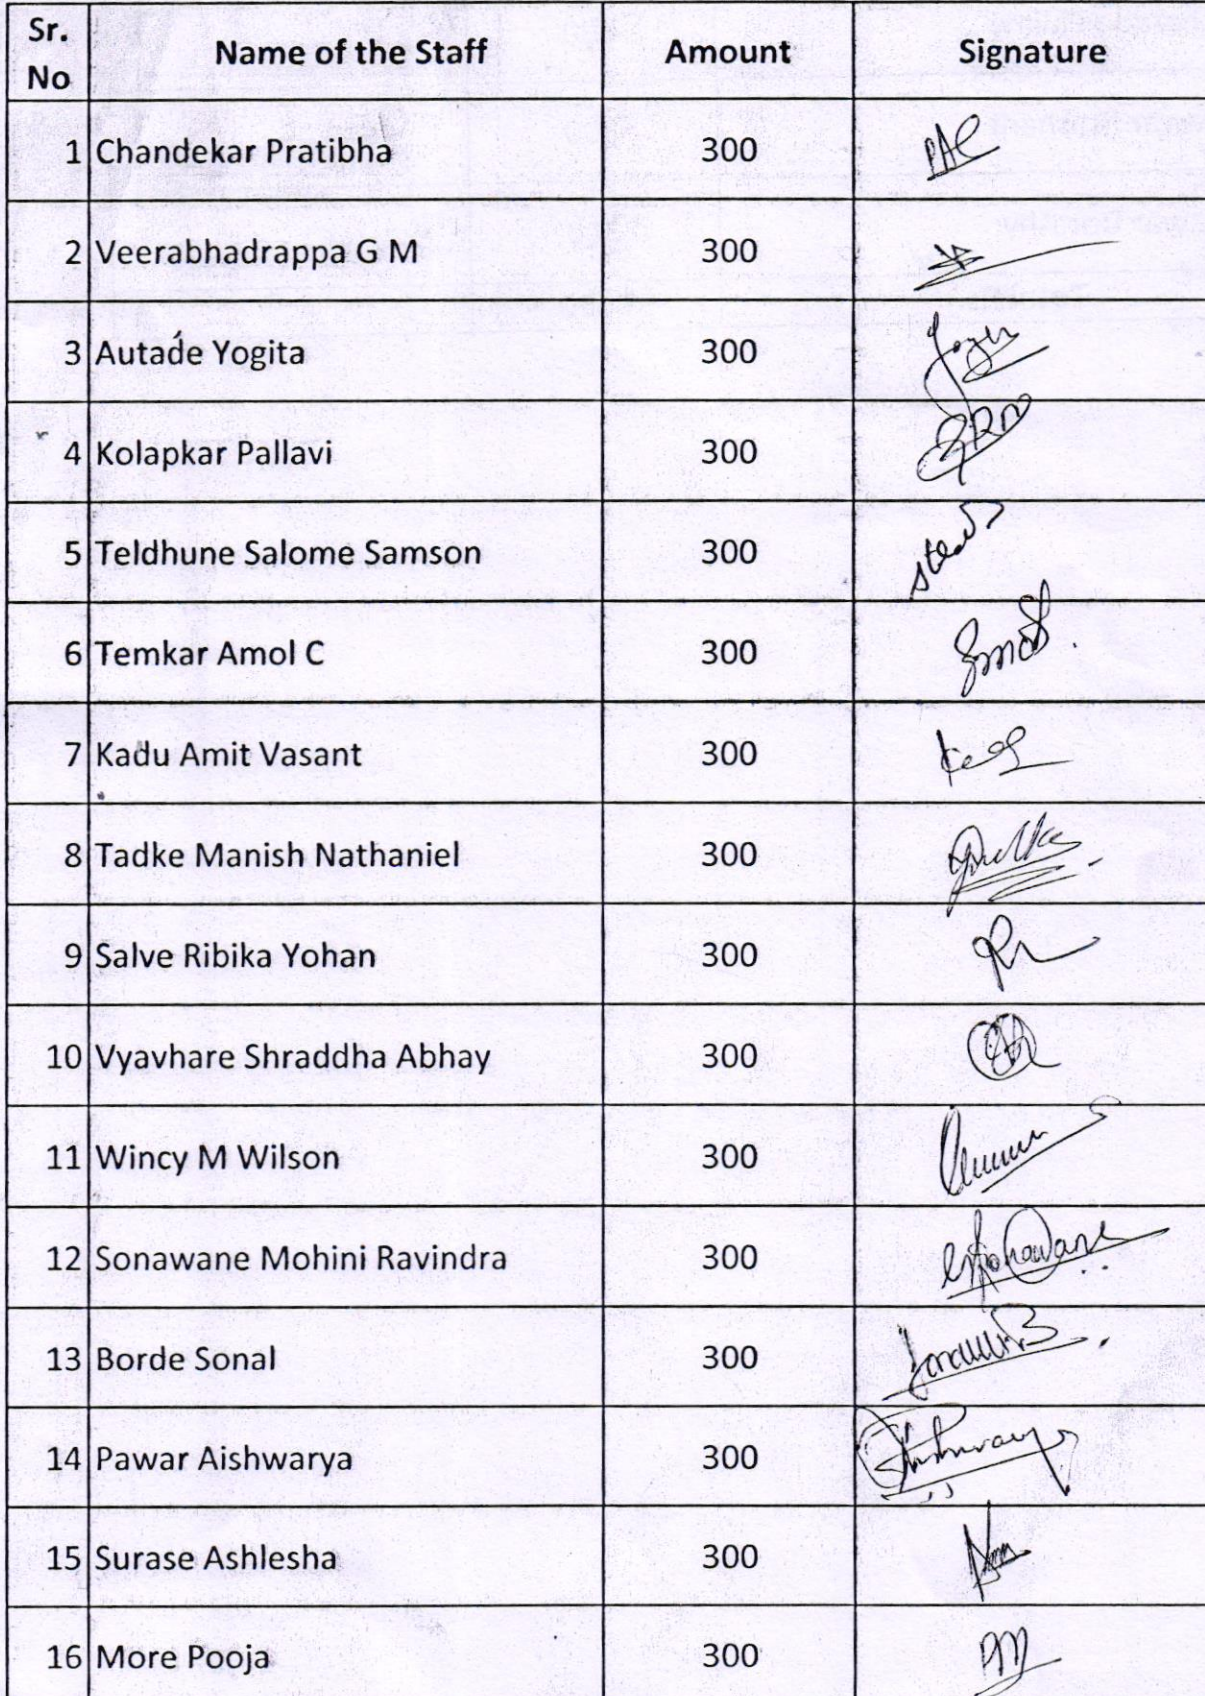 Sr. No Name of the Staff Amount Signature
1 Chandekar Pratibha 300
2 Veerabhadrappa G M 300
3 Autade Yogita 300
4 Kolapkar Pallavi 300
5 Teldhune Salome Samson 300
6 Temkar Amol C 300
7 Kadu Amit Vasant 300
8 Tadke Manish Nathaniel 300
9 Salve Ribika Yohan 300
10 Vyavhare Shraddha Abhay 300
11 Wincy M Wilson 300
12 Sonawane Mohini Ravindra 300
13 Borde Sonal 300
14 Pawar Aishwarya 300
15 Surase Ashlesha 300
16 More Pooja 300